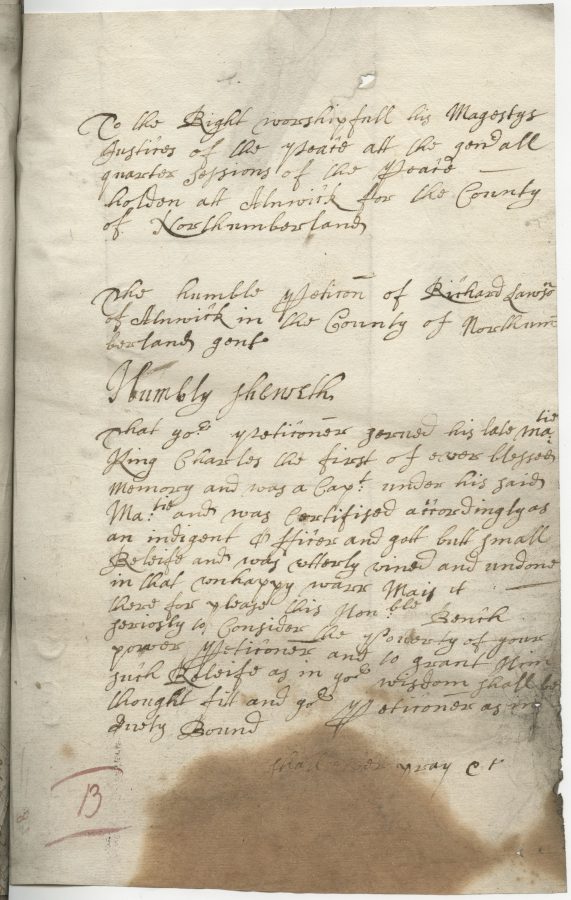 To the Right worshipfull his Magestys
Justices of the Peace att the genall
quarter Sessions of the Peace
holden att Alnwick for the County
of Northumberland
The humble Peticon of Richard Lawson
of Alnwick in the County of Northum
berland gent
Humbly sheweth
That yor Peticoner served his late Matie
King Charles the first of ever blessed
memory and was a Capt under his said
Matie and was Certifised accordingly as
an indigent Officer and gott butt small
Releife and was utterly rined and undone
in that unhappy warr Maij it
there for please this Honble Bench
seriosly to Consider the Poverty of your
power Peticoner and to grant Him
such Releife as in yor wisdom shall be
thought fitt and yor Peticoner as in
duety Bound
shall ever pray &c
13